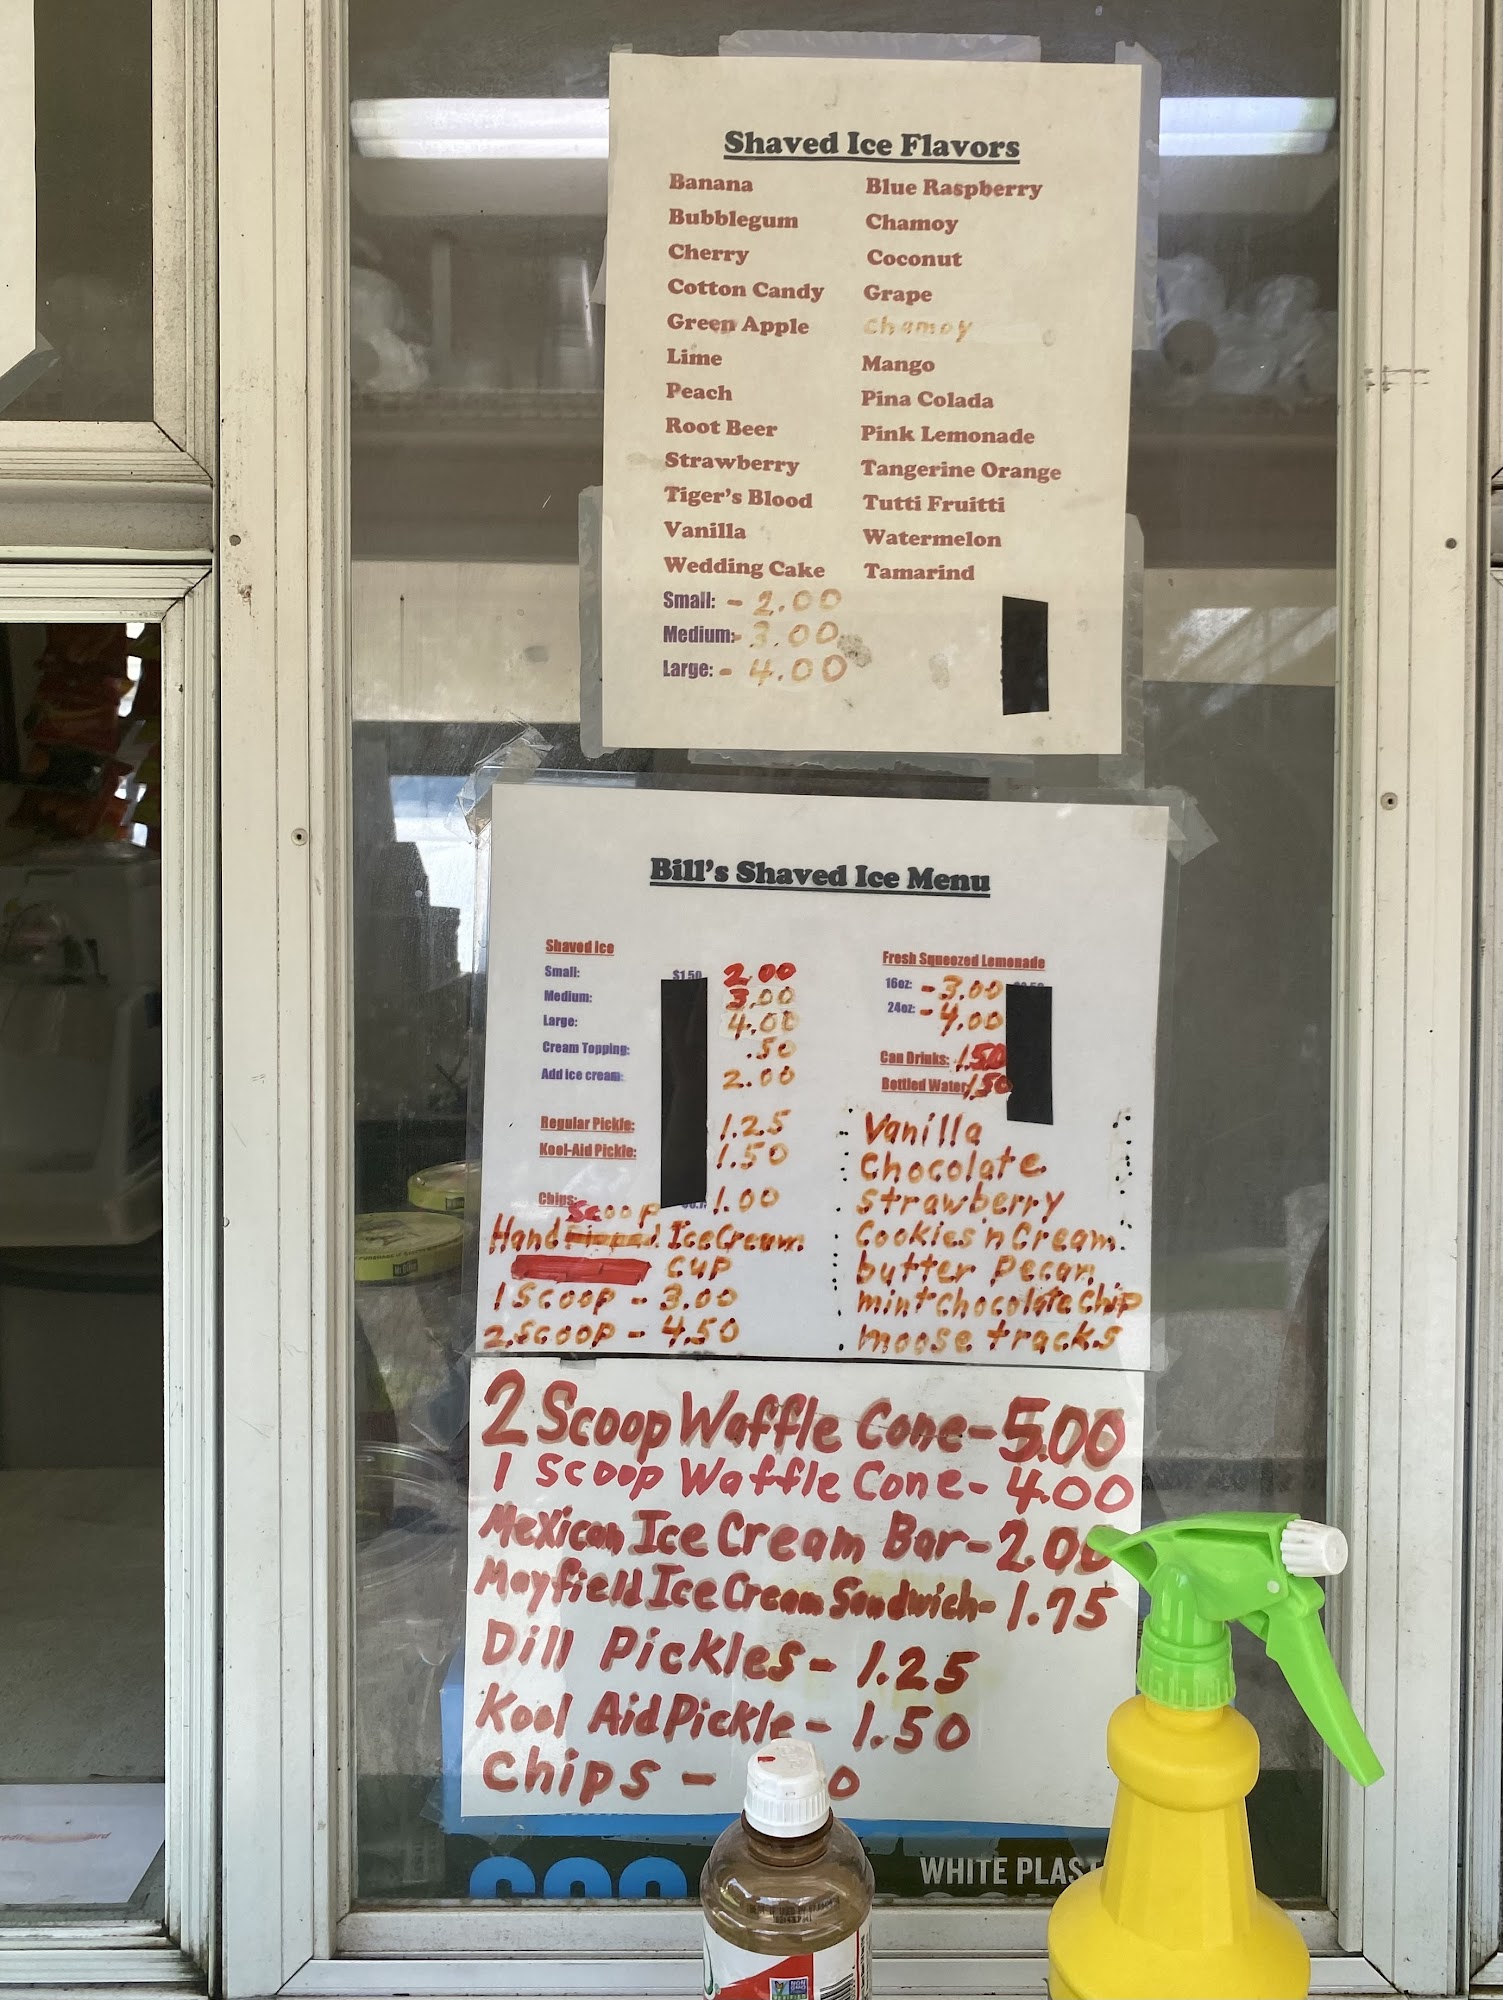 Shaved Ice Flavors
Banana
Bubblegum
Cherry
Cotton Candy
Green Apple
Lime
Peach
Root Beer
Strawberry
Tiger's Blood
Vanilla
Wedding Cake
Blue Raspberry
Chamoy
Coconut
Grape
Chamoy
Mango
Pina Colada
Pink Lemonade
Tangerine Orange
Tutti Fruitti
Watermelon
Tamarind
Small: - 2.00
Medium:- 3.00
Large: - 4.00
Bill's Shaved Ice Menu
Shaved Ice
Small: $1.50 2.00
Medium: 3.00
Large: 4.00
Cream Topping: .50
Add ice cream: 2.00
Regular Pickle: 1.25
Kool-Aid Pickle: 1.50
Chips: 1.00
Scoop
Hand Ice Cream
cup
1 Scoop - 3.00
2.Scoop - 4.50
Fresh Squeezed Lemonade
16oz: - 3.00
24oz: - 4.00
Can Drinks: 1.50
Bottled Water 1.50
Vanilla
Chocolate
Strawberry
Cookies'n Cream
butter Pecan
mint chocolate Chip
moose tracks
2 Scoop Waffle Cone - 5.00
1 scoop Waffle Cone - 4.00
Mexican Ice Cream Bar - 2.00
Mayfield Ice Cream Sandwich - 1.75
Dill Pickles - 1.25
Kool Aid Pickle - 1.50
Chips - 0
WHITE PLAST
NON GMO